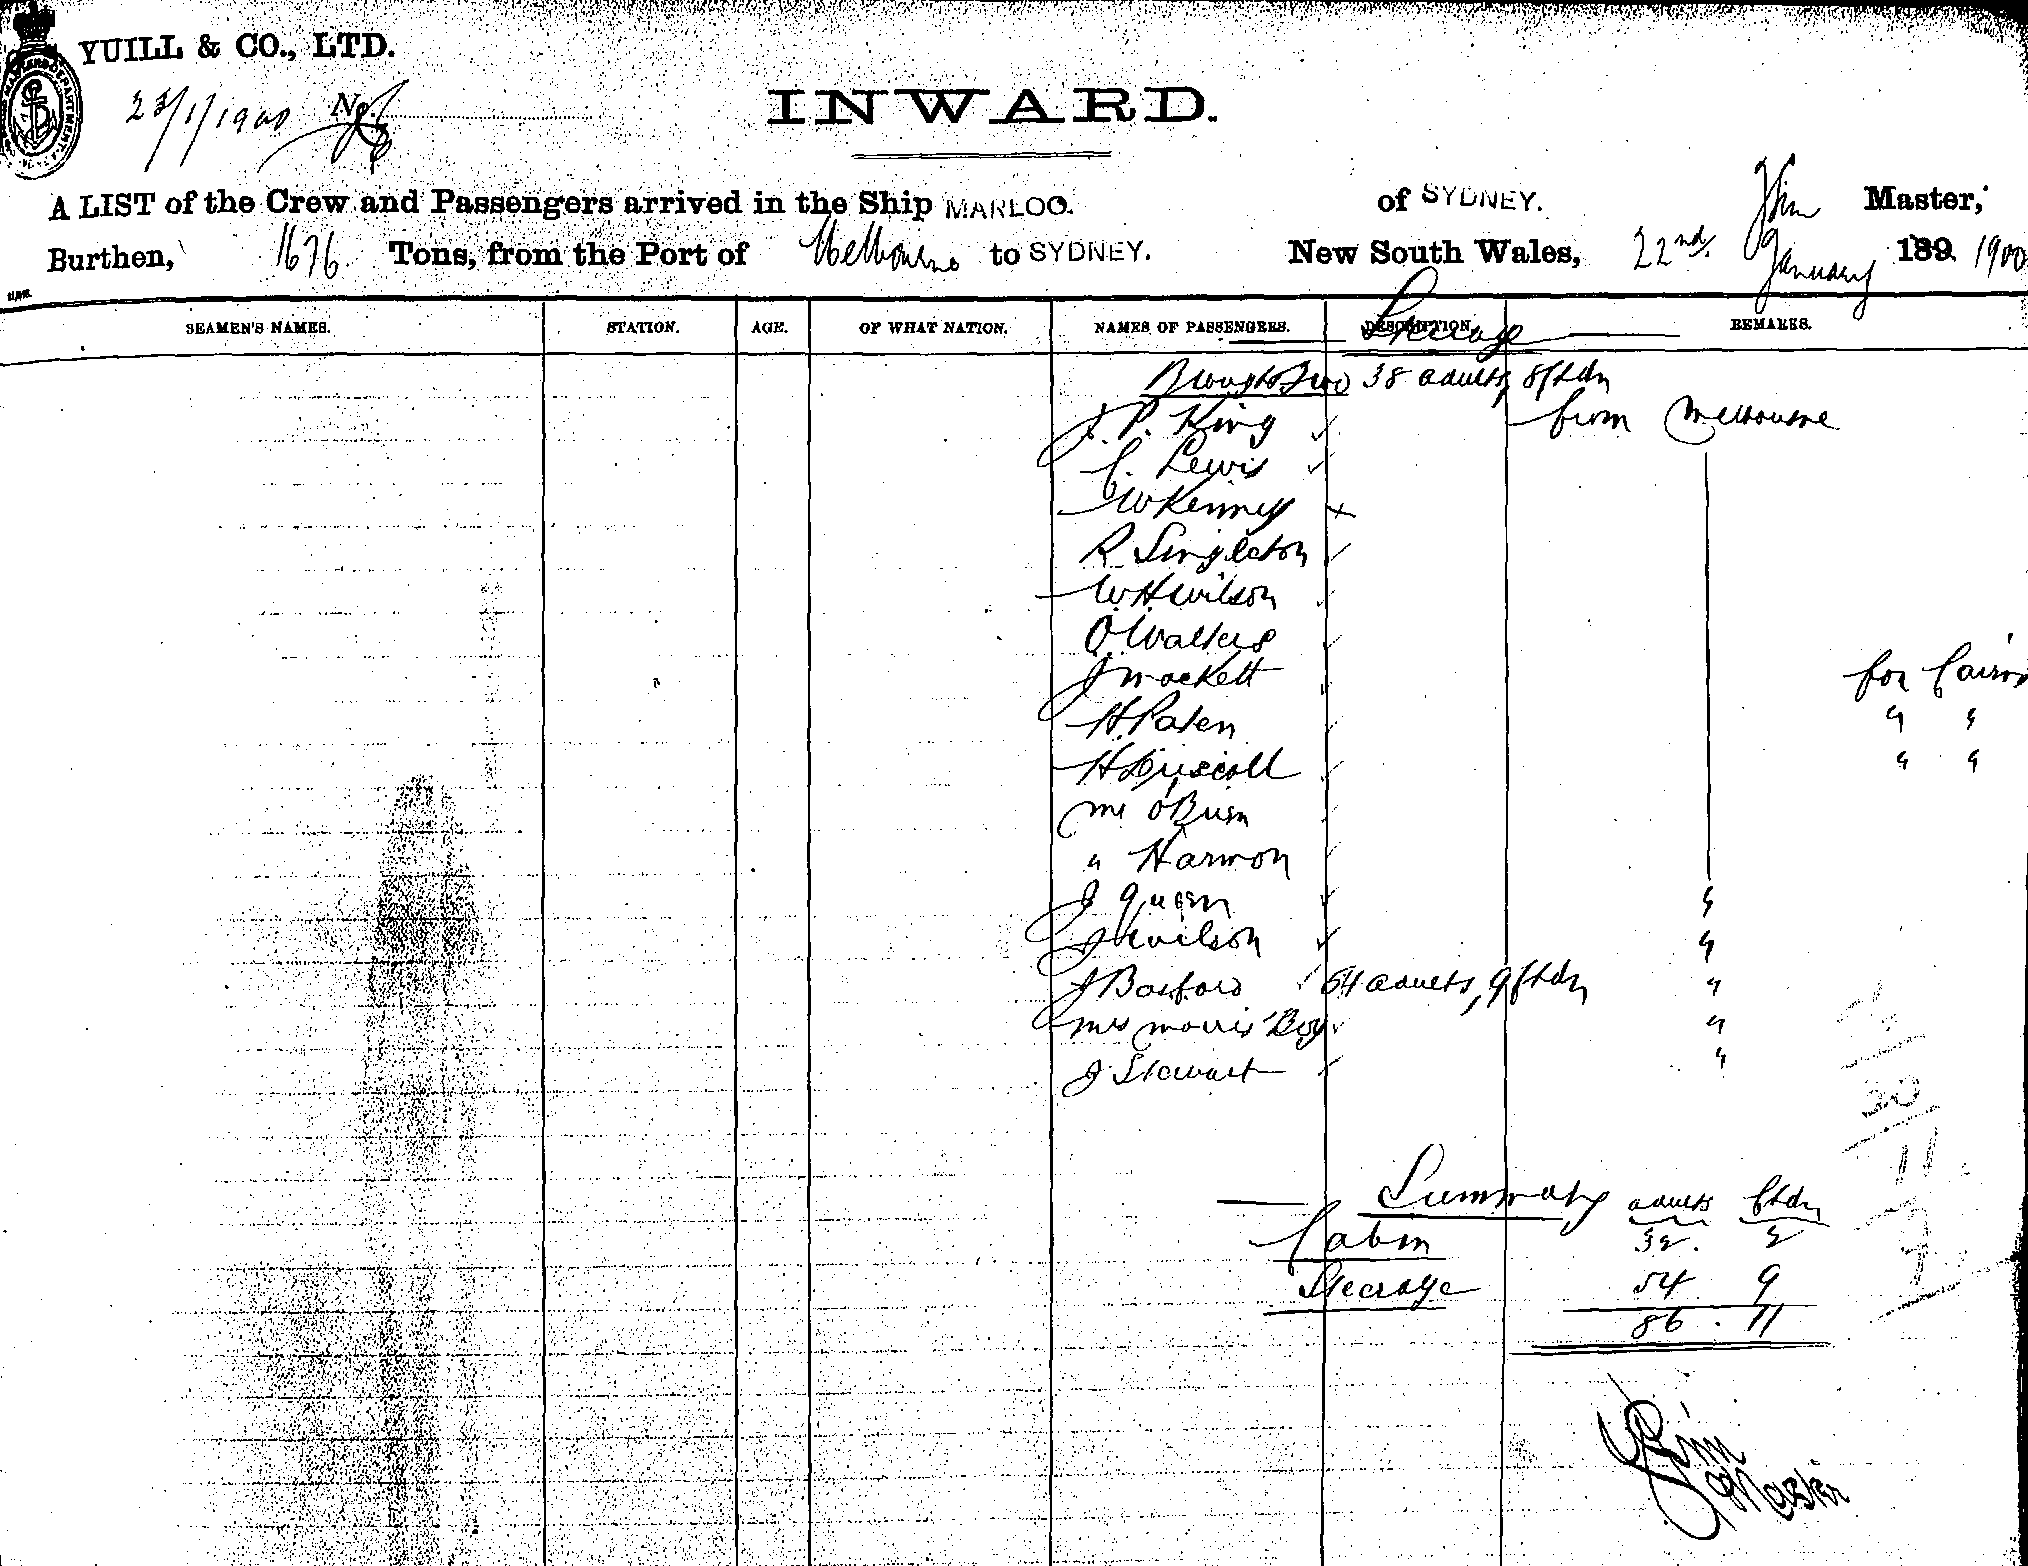 YUILL & CO., LTD.
23/1/1900 No.
INWARD.
A LIST of the Crew and Passengers arrived in the Ship MARLOO. of SYDNEY. Master,
Burthen, 1676 Tons, from the Port of Melbourne to SYDNEY. New South Wales, 22nd. January 189 1900
SEAMEN'S NAMES. STATION. AGE. OF WHAT NATION. NAMES OF PASSENGERS. DESCRIPTION. REMARKS.
Steerage
Brought Fwd 38 adults, 8 Chdn
J. P. King ✓ from Melbourne
C. Lewis ✓
W Kenney ×
R Singleton ✓
W. H. Wilson ✓
O. Walters ✓
J Mockett ✓ for Cairns
H. Paten ✓ " "
H Driscoll ✓ " "
Mr O'Brien ✓
" Harmon ✓
J Queen ✓ "
J Wilson ✓ "
J Bosford ✓ 54 adults, 9 Chdn "
Mrs Morris Boy ✓ "
J Stewart ✓ "
Summary adults Chdn
Cabin 32. 2
Steerage 54 9
86 . 11
Master